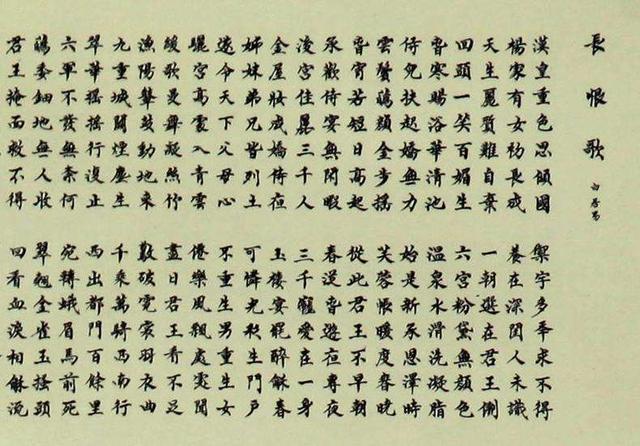 長恨歌
白居易
漢皇重色思傾國 禦宇多年求不得
楊家有女初長成 養在深閨人未識
天生麗質難自棄 一朝選在君王側
回頭一笑百媚生 六宮粉黛無顏色
春寒賜浴華清池 溫泉水滑洗凝脂
侍兒扶起嬌無力 始是新承恩澤時
雲鬢蘤顏金步搖 芙蓉帳暖度春曉
春宵苦短日高起 從此君王不早朝
承歡侍宴無閒暇 春從春遊夜專夜
後宮佳麗三千人 三千寵愛在一身
金屋妝成嬌侍夜 玉樓宴罷醉龢春
姊妹弟兄皆列土 可憐光彩生門戶
遂令天下父母心 不重生男重生女
驪宮高處入青雲 僊樂風飄處處聞
緩歌曼舞凝絲竹 盡日君王看不足
漁陽鼙鼓動地來 驚破霓裳羽衣曲
九重城闕煙塵生 千乘萬騎西南行
翠華搖搖行復止 西出都門百餘里
六軍不發無奈何 宛轉蛾眉馬前死
蘤委鈿地無人收 翠翹金雀玉搔頭
君王掩面救不得 回看血淚相龢流